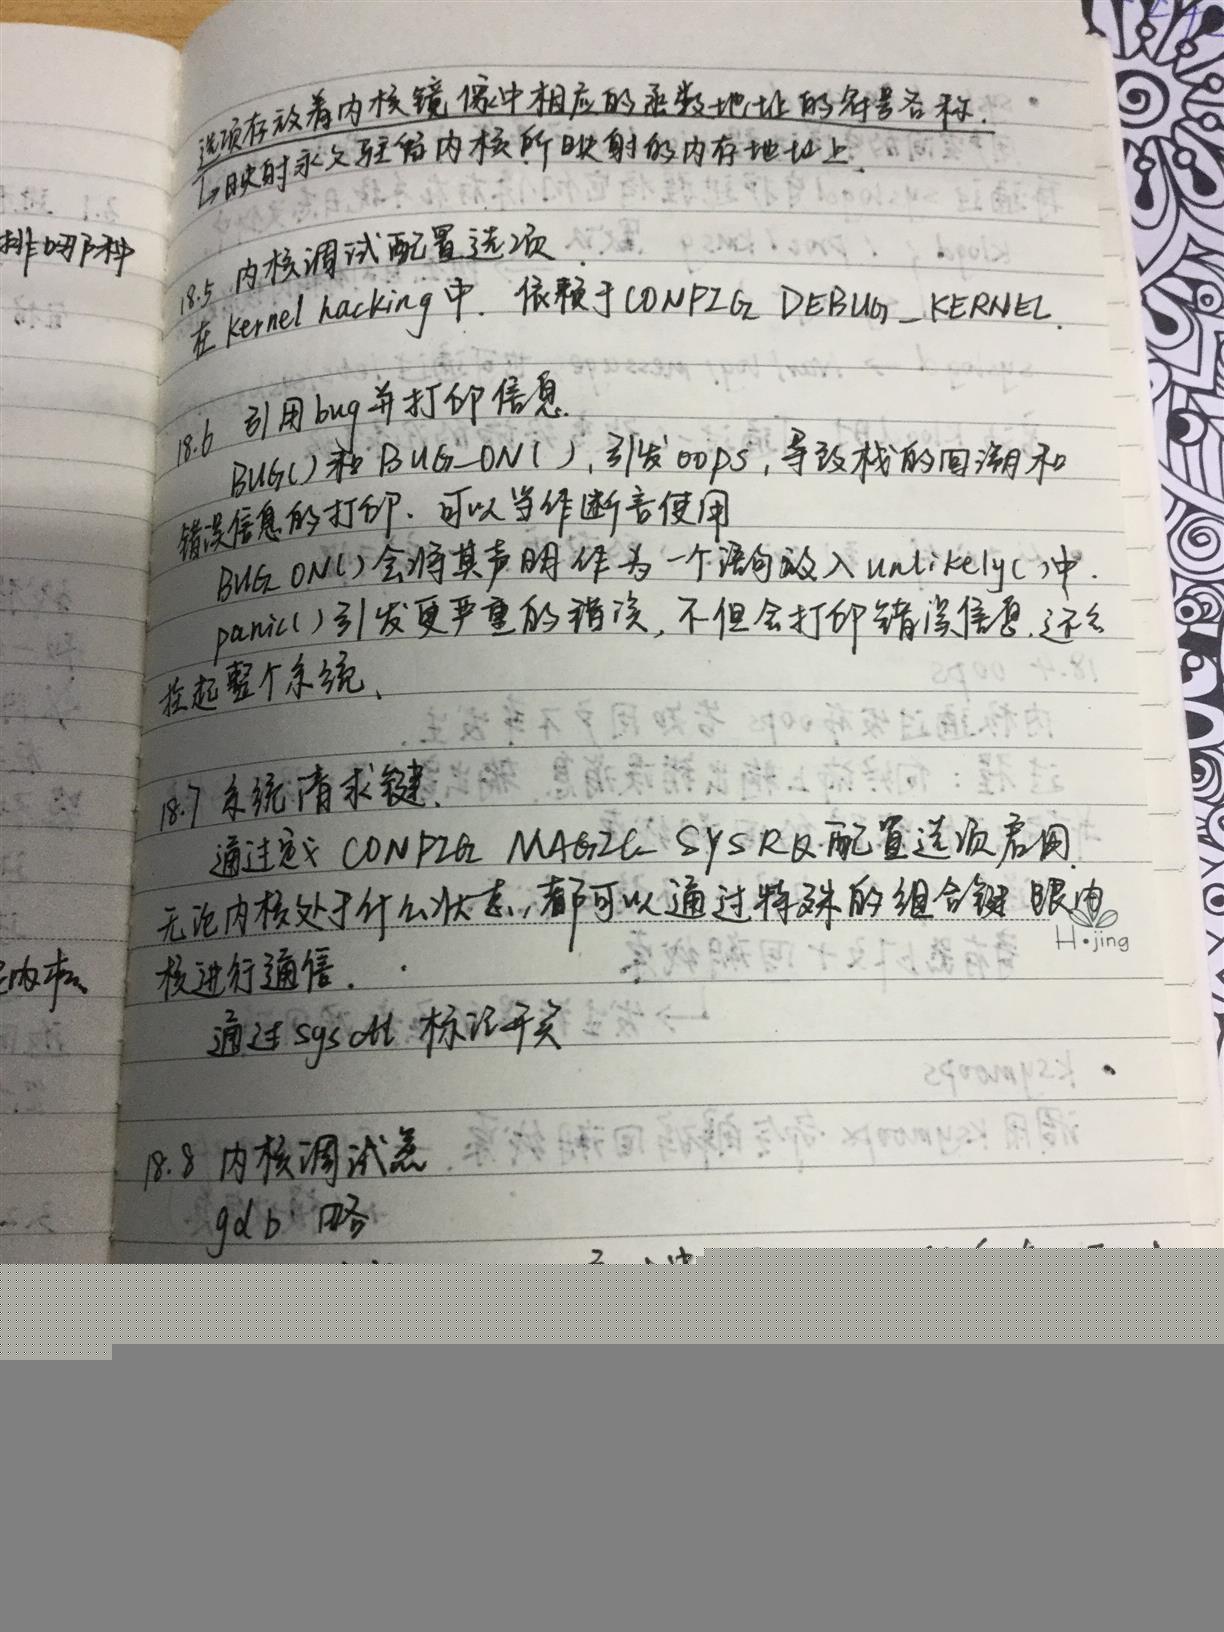 选项存放着内核镜像中相应的函数地址的符号名称.
↳映射永久驻留内核所映射的内存地址上.
排的那种
18.5 内核调试配置选项
在 kernel hacking中. 依赖于CONFIG_DEBUG_KERNEL.
18.6 引用bug并打印信息.
BUG()和BUG_ON(), 引发oops, 导致栈的回溯和
错误信息的打印. 可以当作断言使用
BUG_ON()会将其声明作为一个语句放入unlikely()中.
panic()引发更严重的错误, 不但会打印错误信息, 还会
挂起整个系统.
18.7 系统请求键.
通过定义 CONFIG_MAGIC_SYSRQ 配置选项启用.
无论内核处于什么状态, 都可以通过特殊的组合键跟内
H·jing
核进行通信.
通过sysctl 标记开关
18.8 内核调试器
gdb 略